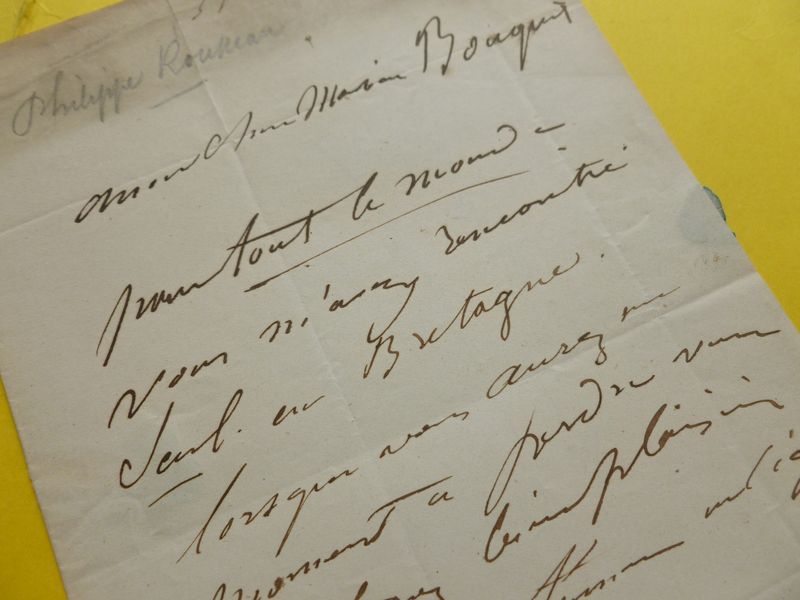 Philippe Rousseau
mon cher Marius Bouquet
pour tout le monde
vous m'avez rencontré
seul. en Bretagne.
lorsque vous aurez un
moment a perdre vous
bien plaisir